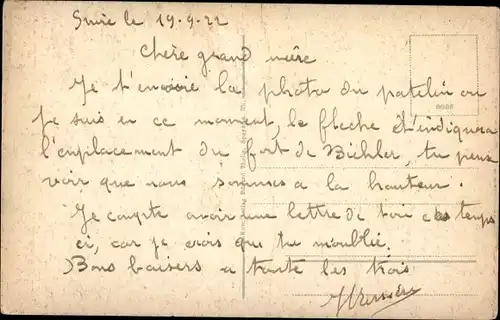 le 19-9-22
Chère grand mère
Je t'envoie la photo du patelin ou
je suis en ce moment, le fleche t'indiquera
l'emplacement du fort de Bichler, tu peux
voir que nous sommes a la hauteur.
Je compte avoir une lettre de toi ces temps
ci, car je crois que tu m'oublie.
Bons baisers a toute les trois